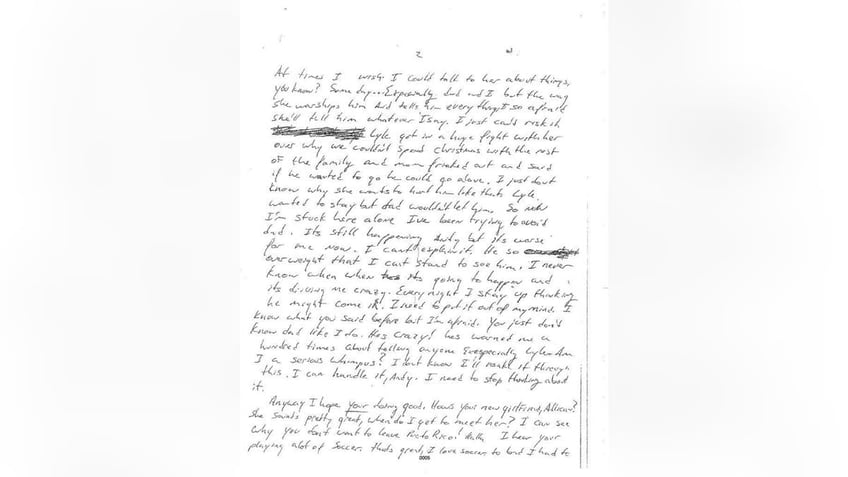 2
At times I wish I could talk to her about things,
you know? Some day... Especially dad and I but the way
she worships him and tells him everything I so afraid
she'll tell him whatever I say. I just can't risk it.
Lyle got in a huge fight with her
over why we couldn't spend Christmas with the rest
of the family and mom freaked out and said
if he wanted to go he could go alone. I just dont
know why she wants to hurt him like that. Lyle
wanted to stay but dad wouldn't let him. So now
I'm stuck here alone I've been trying to avoid
dad. Its still happening Andy but its worse
for me now. I can't explain it. He so
overweight that I cant stand to see him. I never
know when when its going to happen and
its driving me crazy. Every night I stay up thinking
he might come in. I need to put it out of my mind. I
know what you said before but I'm afraid. You just don't
know dad like I do. Hes crazy! hes warned me a
hundred times about telling anyone especially Lyle. Am
I a serious whimpus? I dont know I'll make it through
this. I can handle it, Andy. I need to stop thinking about
it.
Anyway I hope your doing good. Hows your new girlfriend, Allison?
She sounds pretty great, when do I get to meet her? I can see
why you dont want to leave I hear your
playing alot of Soccer. thats great, I love soccer to but I had to